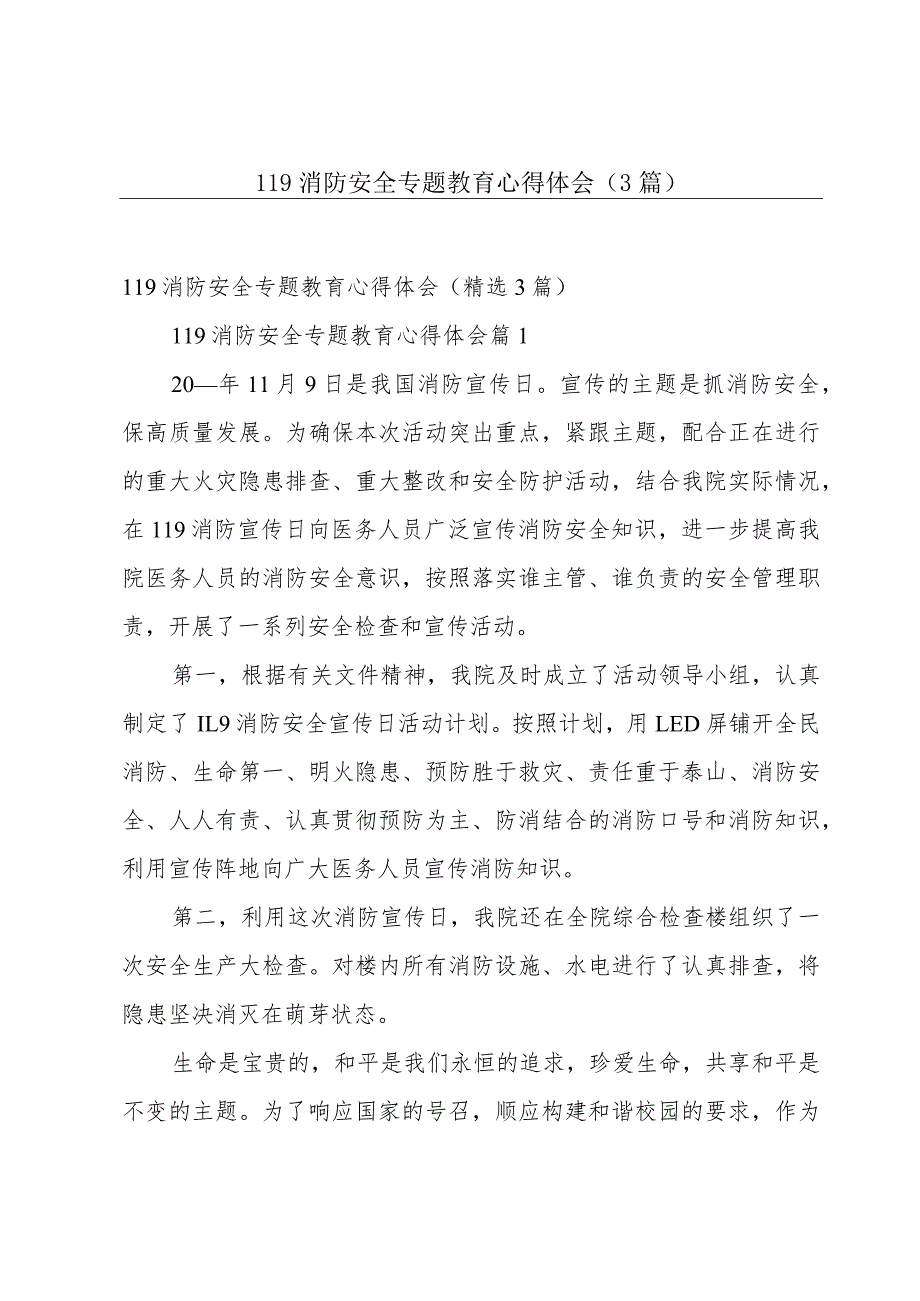 119 消防安全专题教育心得体会（3 篇）
119 消防安全专题教育心得体会（精选 3 篇）
119 消防安全专题教育心得体会篇 1
20—年 11 月 9 日是我国消防宣传日。宣传的主题是抓消防安全，
保高质量发展。为确保本次活动突出重点，紧跟主题，配合正在进行
的重大火灾隐患排查、重大整改和安全防护活动，结合我院实际情况，
在 119 消防宣传日向医务人员广泛宣传消防安全知识，进一步提高我
院医务人员的消防安全意识，按照落实谁主管、谁负责的安全管理职
责，开展了一系列安全检查和宣传活动。
第一，根据有关文件精神，我院及时成立了活动领导小组，认真
制定了 IL9 消防安全宣传日活动计划。按照计划，用 LED 屏铺开全民
消防、生命第一、明火隐患、预防胜于救灾、责任重于泰山、消防安
全、人人有责、认真贯彻预防为主、防消结合的消防口号和消防知识，
利用宣传阵地向广大医务人员宣传消防知识。
第二，利用这次消防宣传日，我院还在全院综合检查楼组织了一
次安全生产大检查。对楼内所有消防设施、水电进行了认真排查，将
隐患坚决消灭在萌芽状态。
生命是宝贵的，和平是我们永恒的追求，珍爱生命，共享和平是
不变的主题。为了响应国家的号召，顺应构建和谐校园的要求，作为